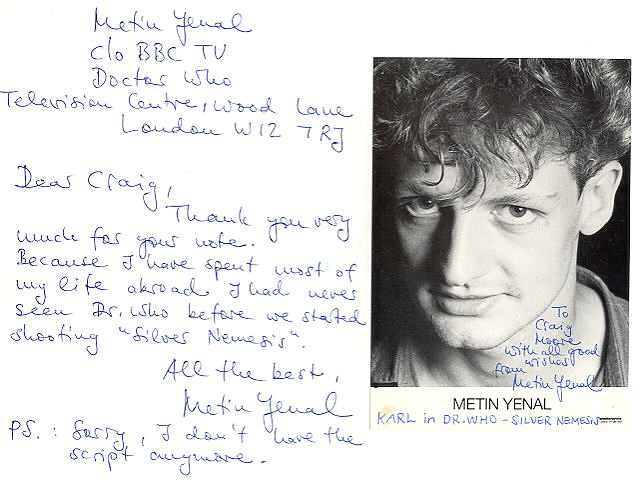 Metin Yenal
c/o BBC TV
Doctor Who
Television Centre, Wood Lane
London W12 7RJ
Dear Craig,
Thank you very
much for your note.
Because I have spent most of
my life abroad I had never
seen Dr. Who before we started
shooting "Silver Nemesis".
All the best,
Metin Yenal
PS.: Sorry, I don't have the
script anymore.
To
Craig
Moore
with all good
wishes
from
Metin Yenal
METIN YENAL
KARL in DR. WHO - SILVER NEMESIS